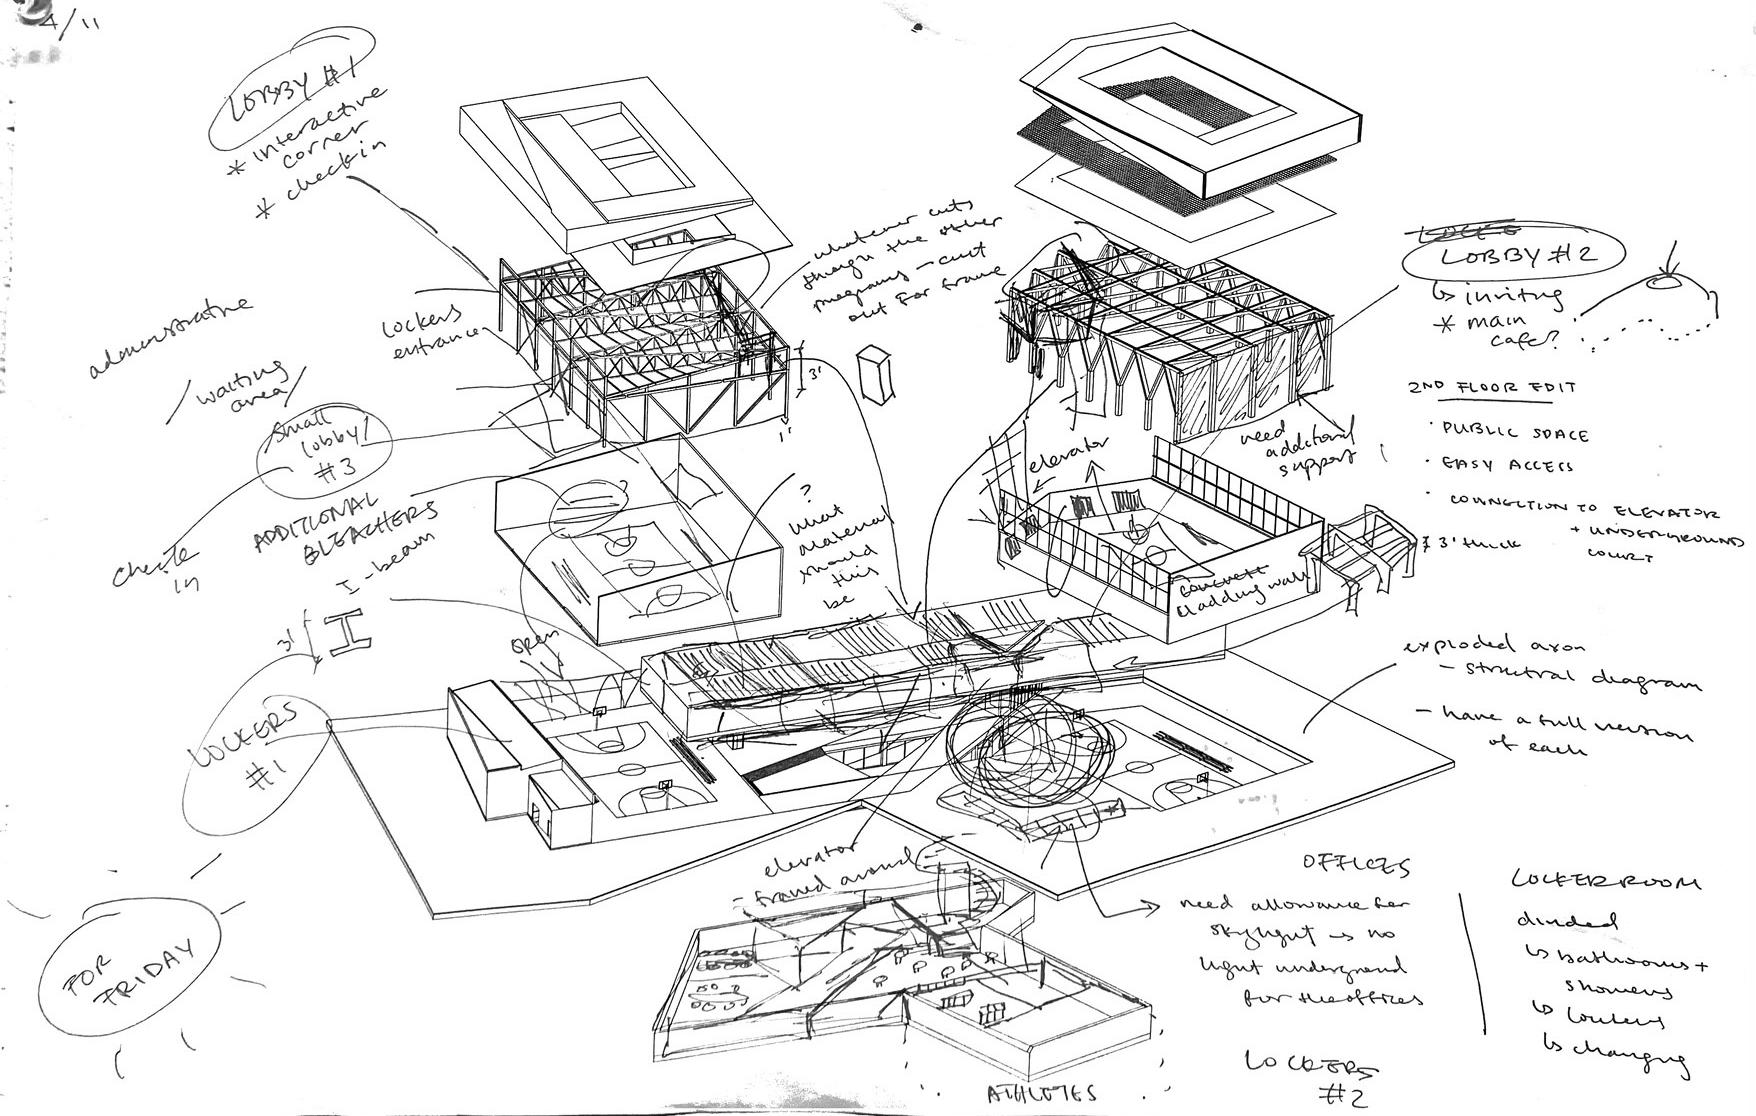 4/11
LOBBY #1
* interactive
corner
* check in
administrative
waiting
area
lockers
entrance
small
lobby
#3
check
in
ADDITIONAL
BLEACHERS
I-beam
3'
LOCKERS
#1
FOR
FRIDAY
whatever cuts
through the other
programs – cut
out for frame
3'
1'
?
what
material
should
this
be
open
elevator
need
additional
support
concrete
cladding wall
LOBBY #2
↳ inviting
* main
cafe?
2ND FLOOR EDIT
· PUBLIC SPACE
· EASY ACCESS
· CONNECTION TO ELEVATOR
+ UNDERGROUND
COURT
3' thick
exploded axon
– structural diagram
– have a full version
of each
elevator
– framed around
OFFICES
need allowance for
skylight → no
light underground
for the offices
LOCKERS
#2
ATHLETES
LOCKER ROOM
divided
↳ bathrooms +
showers
↳ lockers
↳ changing